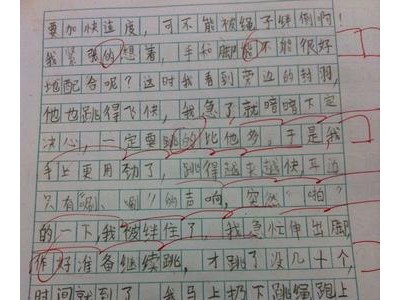 要加快速度，可不能被绳子绊倒啊！
我紧张的想着，手和脚能不能很好
地配合呢？这时我看到旁边的封羽，
他也跳得飞快，我急了就暗暗下定
决心，一定要跳的比他多。于是我
手上更用劲了，跳得越来越快，耳边
只有“唰、唰”的声响，突然“啪”
的一下我被绊住了，我急忙伸出脚
作好准备继续跳，才跳了没几十个，
时间就到了，我马上扔下跳绳跑上